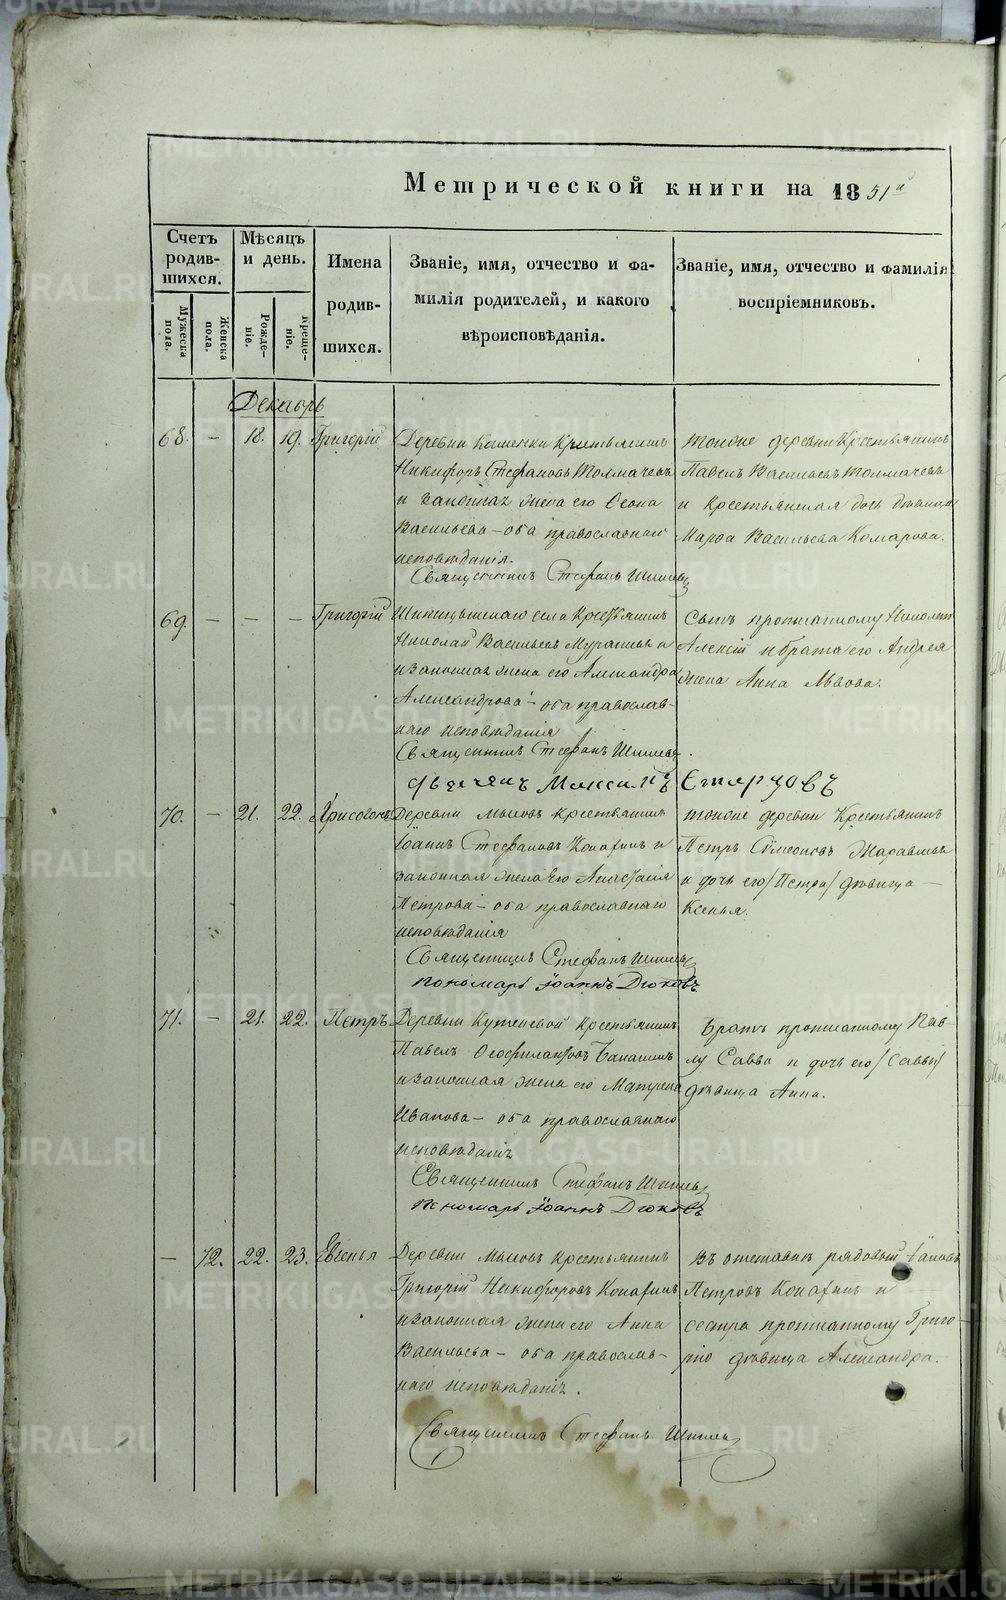 METRIKI.GASO-URAL.RU
Метрической книги на 1851й
Счетъ родив-шихся.
Мѣсяцъ и день.
Имена родив-шихся.
Званіе, имя, отчество и фа-
милія родителей, и какого
вѣроисповѣданія.
Званіе, имя, отчество и фамилія
воспріемниковъ.
Мужеска пола.
Женска пола.
Рожде-ніе.
Креще-ніе.
Декабрь
68. – 18. 19. Григорій
Деревни Каменки Крестьянинъ
Никифоръ Стефановъ Толмачевъ
и законная жена его
Васильева – оба православнаго
исповѣданія.
Священникъ Стефанъ
тойже деревни Крестьянинъ
Павелъ Васильевъ Толмачевъ
и Крестьянская дочь дѣвица
Марѳа Васильева Комарова.
69. – – – Григорій
села Крестьянинъ
Николай Васильевъ и
законная жена его Александра
Александрова – оба православ-
наго исповѣданія
Священникъ Стефанъ
сынъ прописанному Николаю
Алексій и брата его Андрея
жена Анна Львова.
Дьячекъ Максимъ
70. – 21. 22. Хрисогонъ
Деревни Мысовъ крестьянинъ
Іоаннъ Стефановъ Конахинъ и
законная жена его Анастасія
Петрова – оба православнаго
исповѣданія
Священникъ Стефанъ
пономарь Іоаннъ Дюковъ
тойже деревни Крестьянинъ
Петръ Симеоновъ Жаравлевъ
и дочь его /Петра/ дѣвица –
Ксенья.
71. – 21. 22. Петръ
Деревни Кутеневой Крестьянинъ
Павелъ Ѳеофилактовъ
и законная жена его Матрена
Иванова – оба православнаго
исповѣданія
Священникъ Стефанъ
пономарь Іоаннъ Дюковъ
Братъ прописанному Пав-
лу Савва и дочь его /Саввы/
дѣвица Анна.
– 72. 22. 23. Евгенья
Деревни Мысовъ крестьянинъ
Григорій Никифоровъ Конахинъ
и законная жена его Анна
Васильева – оба православ-
наго исповѣданія.
Священникъ Стефанъ
Въ отставкѣ рядовый Іаковъ
Петровъ Конахинъ и
сестра прописанному Григо-
рію дѣвица Александра.